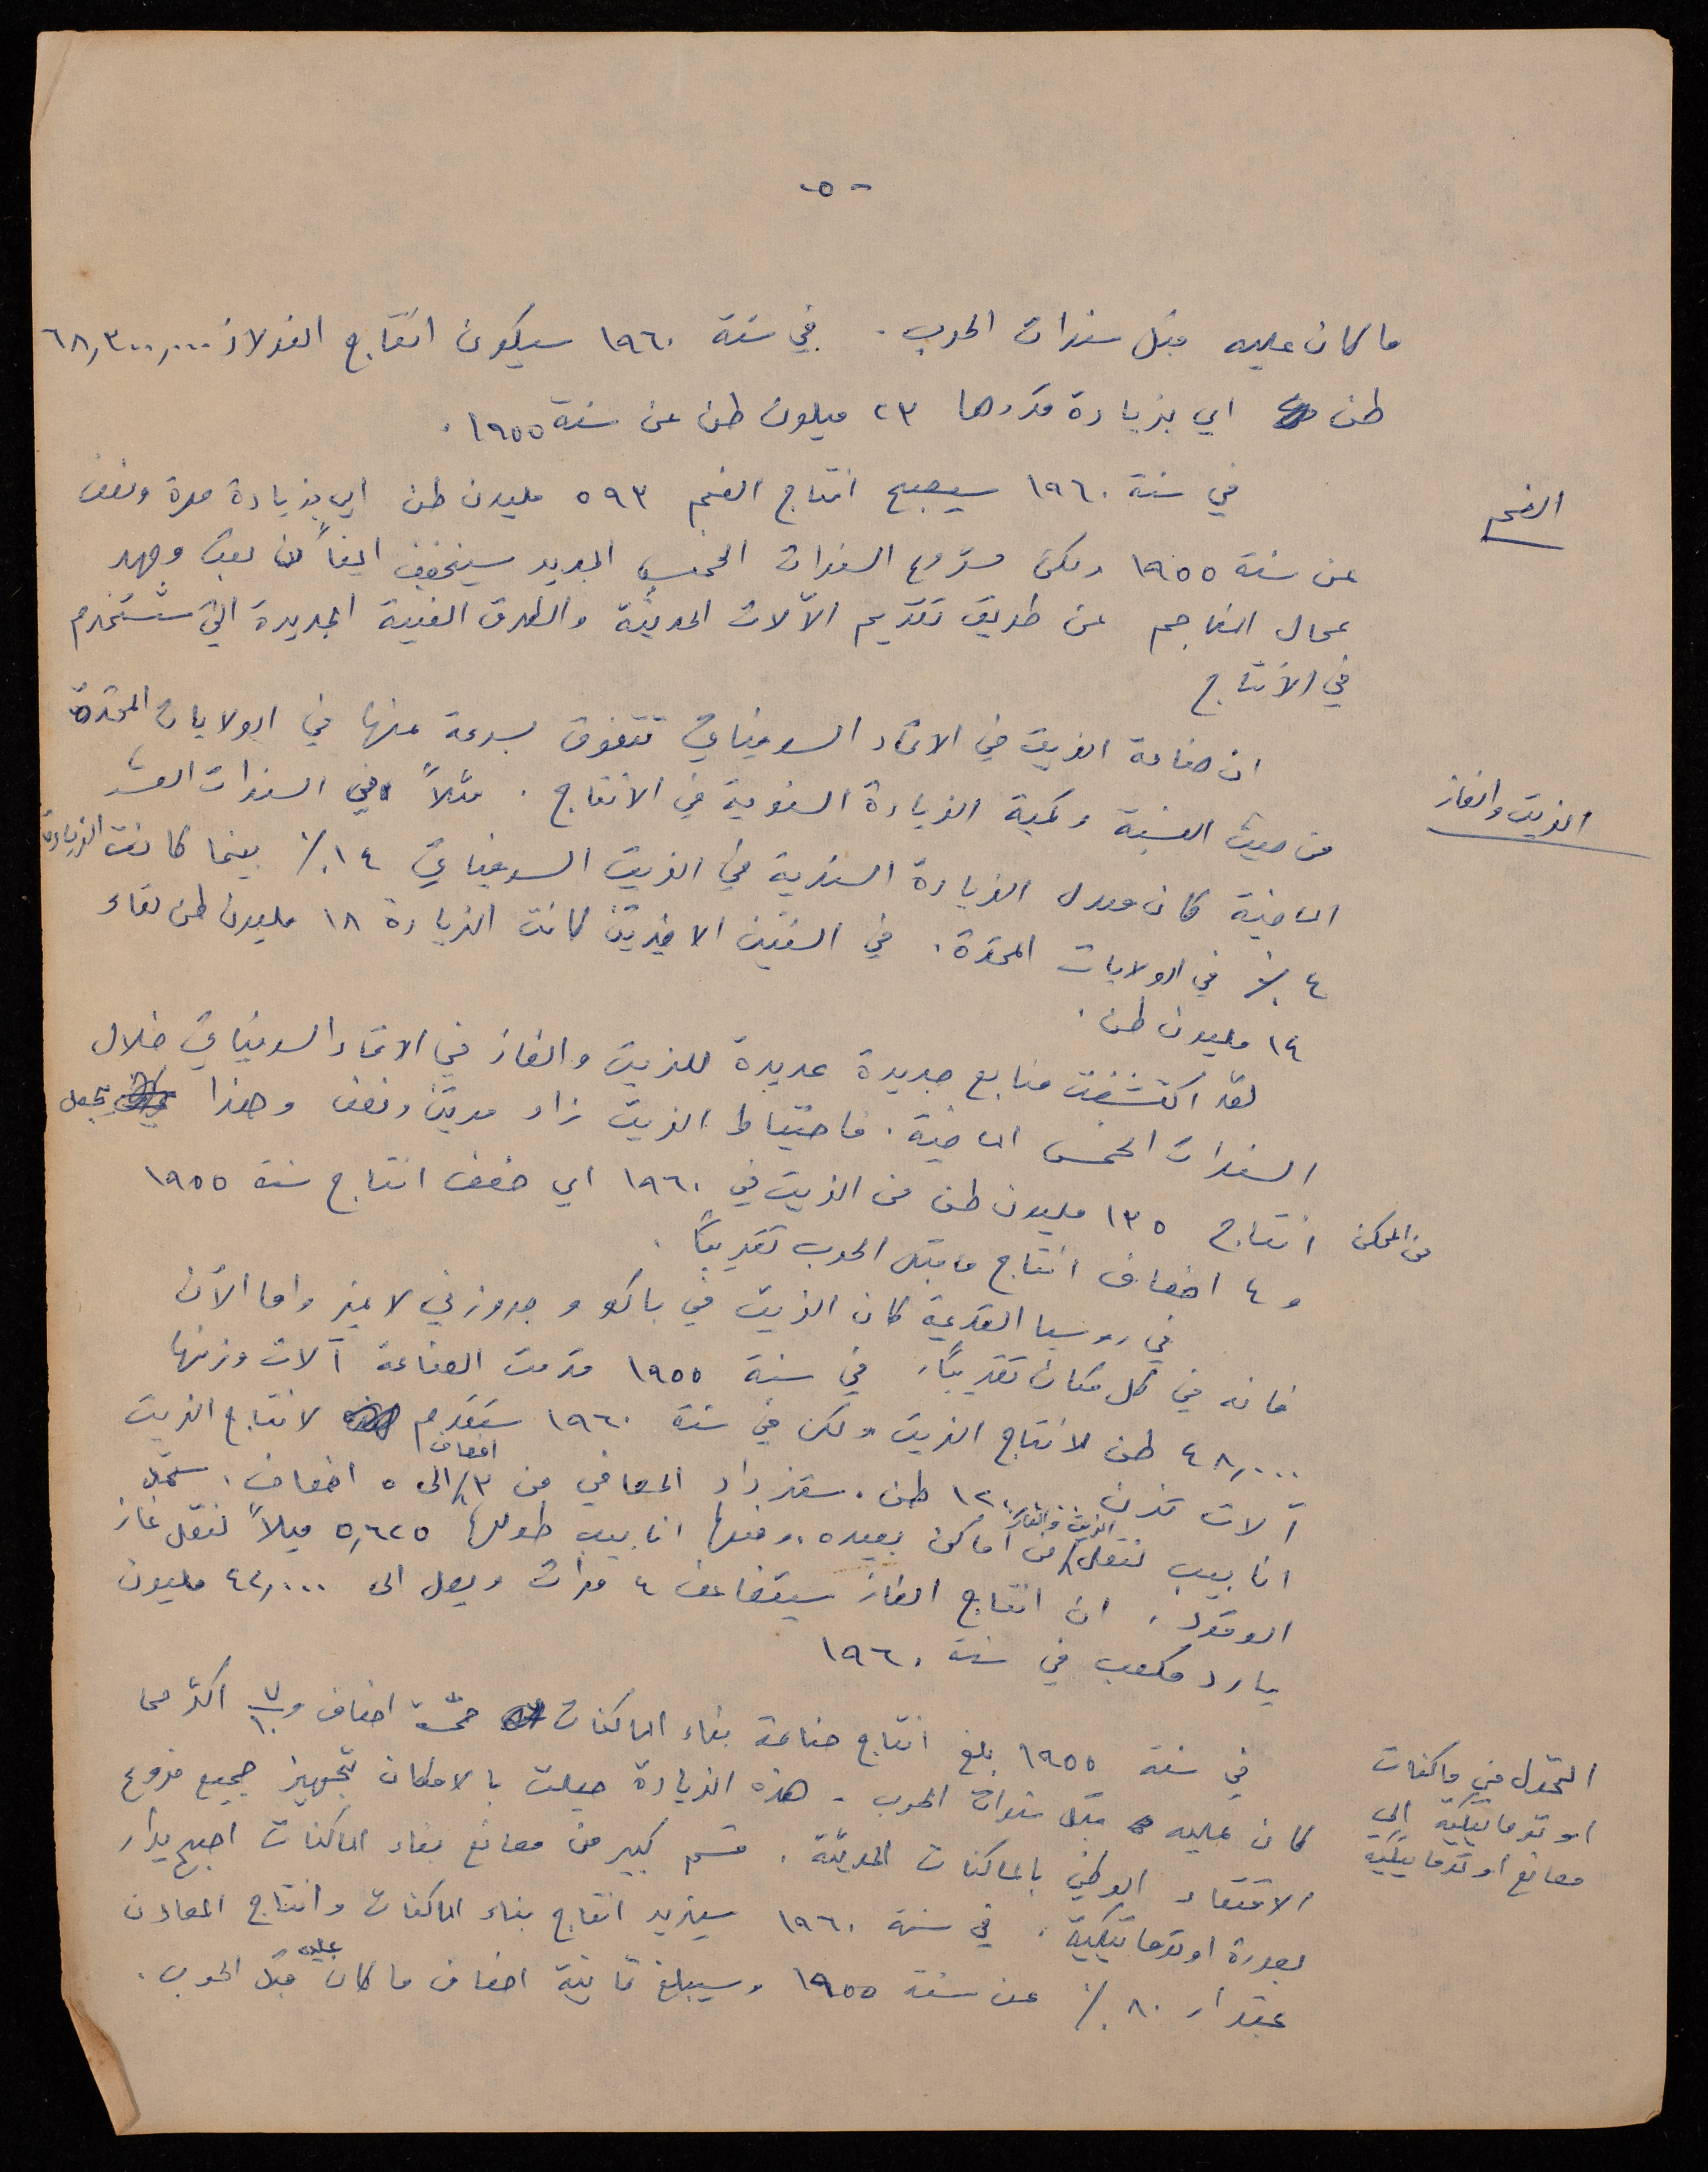 - ٥ -
ما كان عليه قبل سنوات الحرب . في سنة ١٩٦٠ سيكون انتاج الفولاذ ٦٨,٣٠٠,٠٠٠
طن اي بزيادة قدرها ٢٣ ميلون طن عن سنة ١٩٥٥ .
الفحم
في سنة ١٩٦٠ سيصبح انتاج الفحم ٥٩٣ مليون طن اي بزيادة مرة ونصف
عن سنة ١٩٥٥ ولكن مشروع السنوات الخمس الجديد سيخفف ايضاً من تعب وجهد
عمال المناجم عن طريق تقديم الآلات الحديثة والطرق الفنية الجديدة التي ستستخدم
في الانتاج
الزيت والغاز
ان صناعة الزيت في الاتحاد السوفياتي تتفوق بسرعة عنها في الولايات المتحدة
من حيث النسبة وكمية الزيادة السنوية في الانتاج . مثلاً في السنوات العشر
الماضية كان معدل الزيادة السنوية في الزيت السوفياتي ١٤ ٪ بينما كانت الزيادة
٤ ٪ في الولايات المتحدة . في السنتين الاخيرتين كانت الزيادة ١٨ مليون طن لقاء
١٤ مليون طن .
لقد اكتشفت منابع جديدة عديدة للزيت والغاز في الاتحاد السوفياتي خلال
السنوات الخمس الماضية . فاحتياط الزيت زاد مرتين ونصف وهذا يجعل
من الممكن انتاج ١٣٥ مليون طن من الزيت في ١٩٦٠ اي ضعف انتاج سنة ١٩٥٥
و ٤ اضعاف انتاج ما قبل الحرب تقريباً .
في روسيا القديمة كان الزيت في باكو و جروزني لا غير واما الآن
فانه في كل مكان تقريباً . في سنة ١٩٥٥ قدمت الصناعة آلات وزنها
٤٨,٠٠٠ طن لانتاج الزيت ولكن في سنة ١٩٦٠ ستقدم لانتاج الزيت
آلات تزن ١٢٠,٠٠٠ طن . ستزداد المصافي من ٣ اضعاف الى ٥ اضعاف . ستمد
انابيب لنقل الزيت والغاز من اماكن بعيده . ومنها انابيب طولها ٥,٦٢٥ ميلاً لنقل غاز
الوقود . ان انتاج الغاز سيتضاعف ٤ مرات ويصل الى ٤٢,٠٠٠ مليون
يارد مكعب في سنة ١٩٦٠
التحول من ماكنات
اوتوماتيكية الى
مصانع اوتوماتيكية
في سنة ١٩٥٥ بلغ انتاج صناعة بناء الماكنات خمسة اضعاف و ٧/١٠ اكثر مما
كان عليه قبل سنوات الحرب . هذه الزيادة جعلت بالامكان تجهيز جميع فروع
الاقتصاد الوطني بالماكنات الحديثة . قسم كبير من مصانع بناء الماكنات اصبح يدار
بصورة اوتوماتيكية . في سنة ١٩٦٠ سيزيد انتاج بناء الماكنات وانتاج المعادن
بمقدار ٨٠ ٪ عن سنة ١٩٥٥ وسيبلغ ثمانية اضعاف ما كان عليه قبل الحرب .